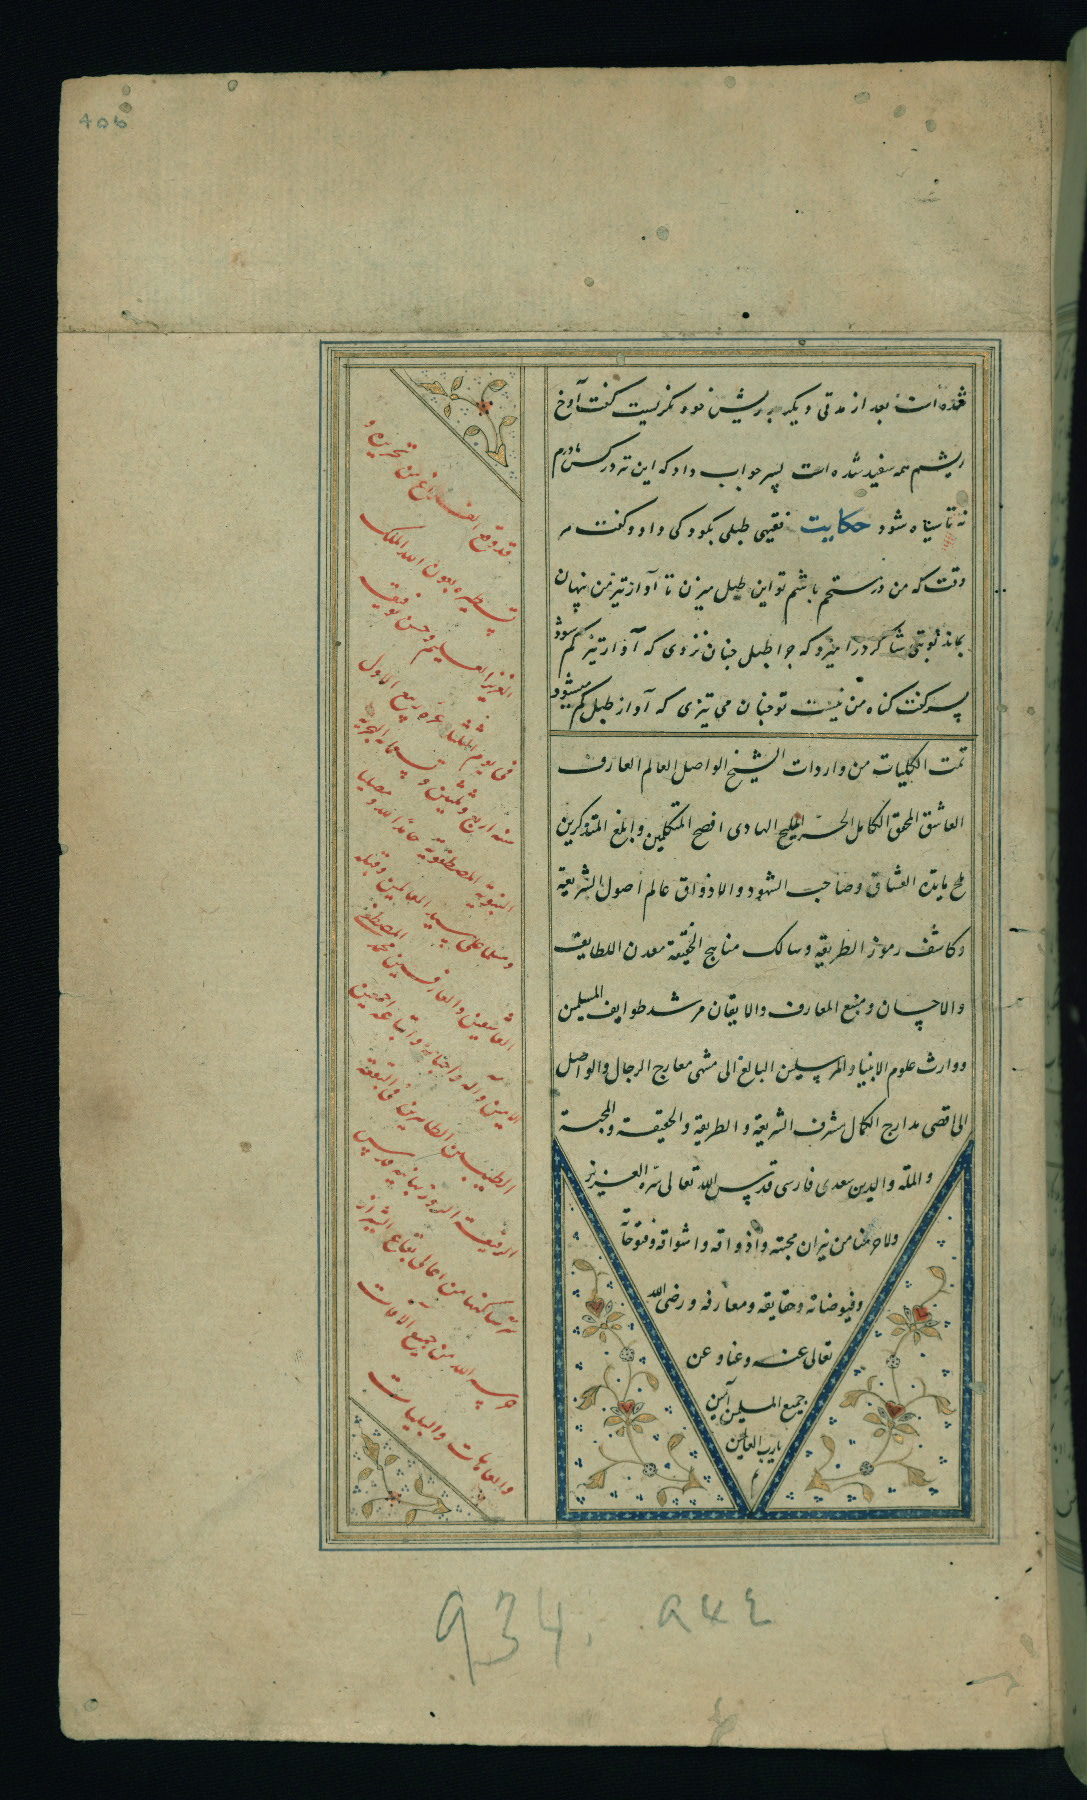 شده است بعد از مدتی دیگر بریش خود نگریست گفت آوخ
ریشم همه سفید شده است پسر جواب داد که این نه در کس مادرم
نه تا سیاه شود حکایت فقیهی طبلی بکودکی داد و گفت هر
وقت که من در ستخم باشم تو این طبل میزن تا آواز تیز من پنهان
بماند نوبتی شاکرد را میزد که چرا طبل چنان نزدی که آواز تیز کم شود
پسر گفت کناه من نیست تو چنان می تیزی که آواز طبل کم میشود
تمت الکلیات من واردات الشیخ الواصل العالم العارف
العاشق المحق الکامل الملیح الهادی افصح المتکلمین و ابلغ المتذکرین
ملح مایدة العشاق و صاحب الشهود والاذواق عالم اصول الشریعة
و کاشف رموز الطریقة و سالک مناهج الحقیقة معدن اللطایف
والاحسان و منبع المعارف والایقان مرشد طوایف المسلمین
و وارث علوم الانبیا و المرسلین البالغ الی منتهی معارج الرجال والواصل
الی اقصی مدارج الکمال مشرف الشریعة و الطریقة و الحقیقة و المحبة
و الملة والدین سعدی فارسی قدس الله تعالی سره العزیز
ولا حرمنا من نیران محبته و اذواقه و اشواقه و فتوحاته
و فیوضاته و حقایقه و معارفه و رضی الله
تعالی عنه و عنا و عن
جمیع المسلمین آمین
یا رب العالمین
قد وقع الفراغ من تحریره و
تسطیره بعون الله الملک
العزیز العلیم و حسن توفیقه
فی یوم الثلثا غره ربیع الاول
سنة اربع و ثلثین و تسعمایة الهجریة
النبویة المصطفویة حامدا لله و مصلیا
و مسلما علی سید العالمین و قبلة
العاشقین والعارفین محمد المصطفی
الامین و آله و احبابه و اتباعه اجمعین
الطیبین الطاهرین فی البقعة
الرفیعة الروزبهانیة قدس
سر ساکنها من اعالی بقاع الشیراز
حرسه الله من جمیع الآفات
والعاهات والبلیات
934. ٩٣٤